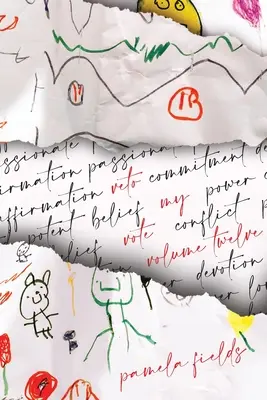 ssionate !
irmation passiona
veto commitment de
affirmation my power
potent belief conflict p
lief vote
volume twelve
er devotion
er lo
pamela fields